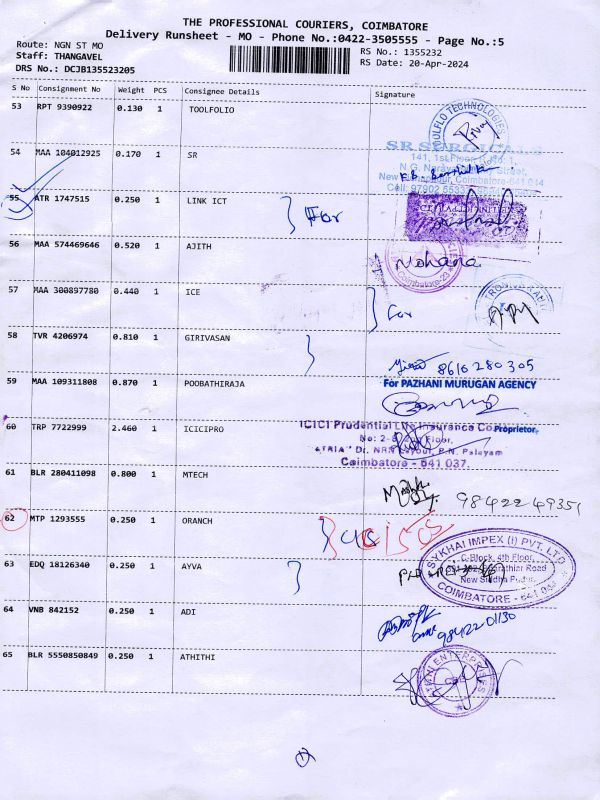 THE PROFESSIONAL COURIERS, COIMBATORE
Delivery Runsheet - MO - Phone No.:0422-3505555 - Page No.:5
Route: NGN ST MO
Staff: THANGAVEL
DRS No.: DCJB135523205
RS No.: 1355232
RS Date: 20-Apr-2024
S No Consignment No Weight PCS Consignee Details Signature
53 RPT 9390922 0.130 1 TOOLFOLIO
54 MAA 104012925 0.170 1 SR
SR SURGICALS
141, 1st Floor
Coimbatore-641 014
55 ATR 1747515 0.250 1 LINK ICT
For
56 MAA 574469646 0.520 1 AJITH
Mohana
57 MAA 300897780 0.440 1 ICE
For
58 TVR 4206974 0.810 1 GIRIVASAN
8610 280 305
59 MAA 109311808 0.870 1 POOBATHIRAJA
For PAZHANI MURUGAN AGENCY
Proprietor
60 TRP 7722999 2.460 1 ICICIPRO
ICICI Prudential Life Insurance Co
Floor,
"ATRIA" Dr. NRN Layout, P.N. Palayam
Coimbatore - 641 037.
61 BLR 280411098 0.800 1 MTECH
98422 49351
62 MTP 1293555 0.250 1 ORANCH
63 EDQ 18126340 0.250 1 AYVA
SYKHAI IMPEX (I) PVT. LTD
C-Block, 4th Floor,
Road
New Siddha Pudur,
COIMBATORE - 641 044
64 VNB 842152 0.250 1 ADI
98422 01130
65 BLR 5550850849 0.250 1 ATHITHI
ENTERPRISES